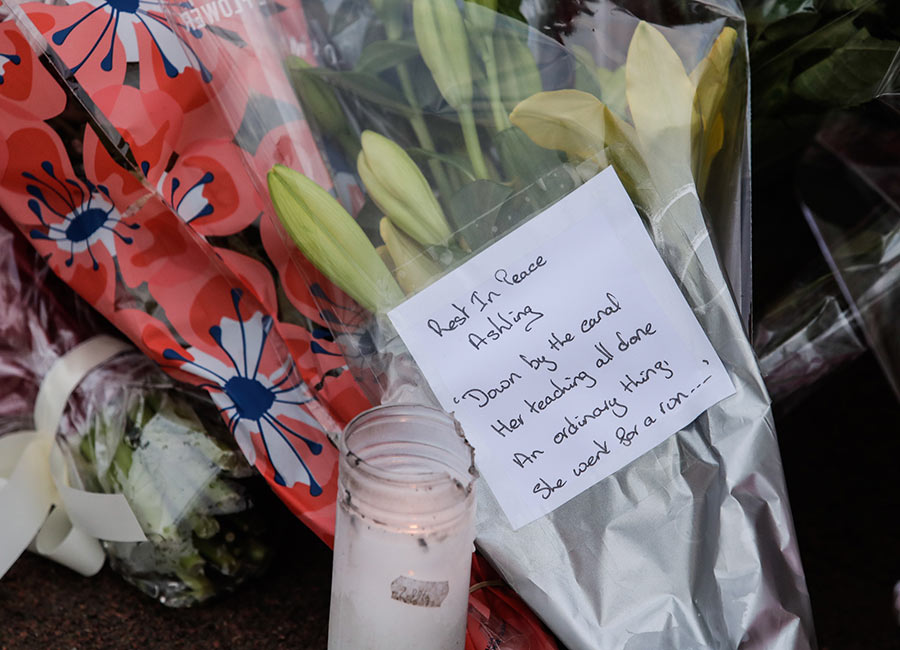 FLOWER
Rest In Peace
Ashling
"Down by the canal
Her teaching all done
An ordinary thing'
She went for a run...."